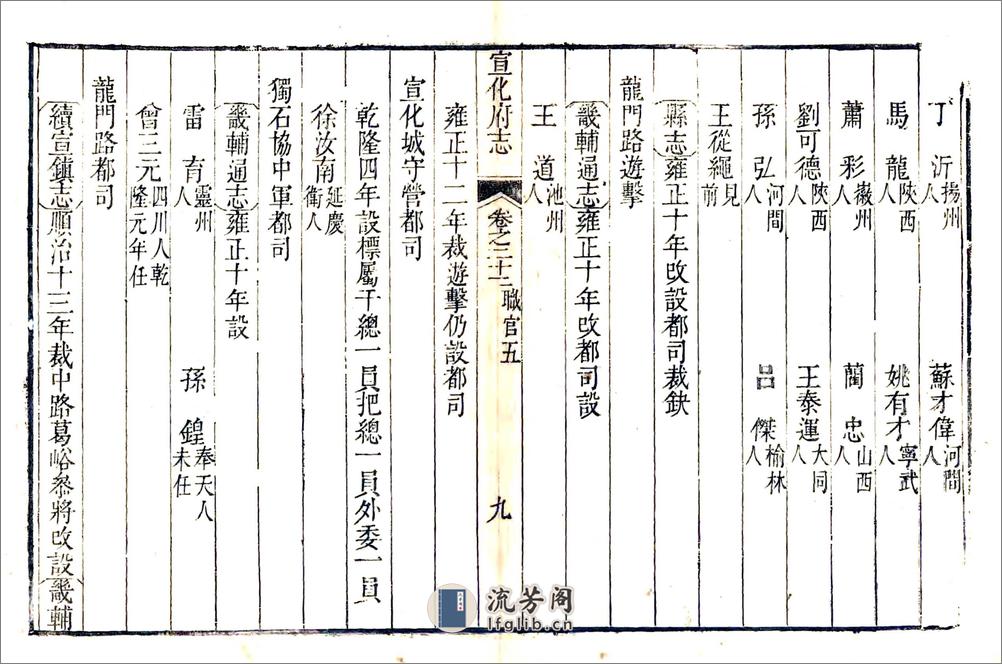 丁　沂揚州人　蘇才偉河間人
馬　龍陝西人　姚有才寧武人
蕭　彩徽州人　藺　忠山西人
劉可德陝西人　王泰運大同人
孫　弘河間人　呂　傑榆林人
王從繩見前
縣志雍正十年改設都司裁缺
龍門路遊擊
畿輔通志雍正十年改都司設
王　道池州人
雍正十二年裁遊擊仍設都司
宣化府志　卷之二十二　職官五　九
宣化城守營都司
乾隆四年設標屬千總一員把總一員外委一員
徐汝南延慶衛人
獨石協中軍都司
畿輔通志雍正十年設
雷　育靈州人　孫　鍠奉天人未任
曾三元四川人乾隆元年任
龍門路都司
續宣鎮志順治十三年裁中路葛峪參將改設畿輔
流芳阁
lfglib.cn